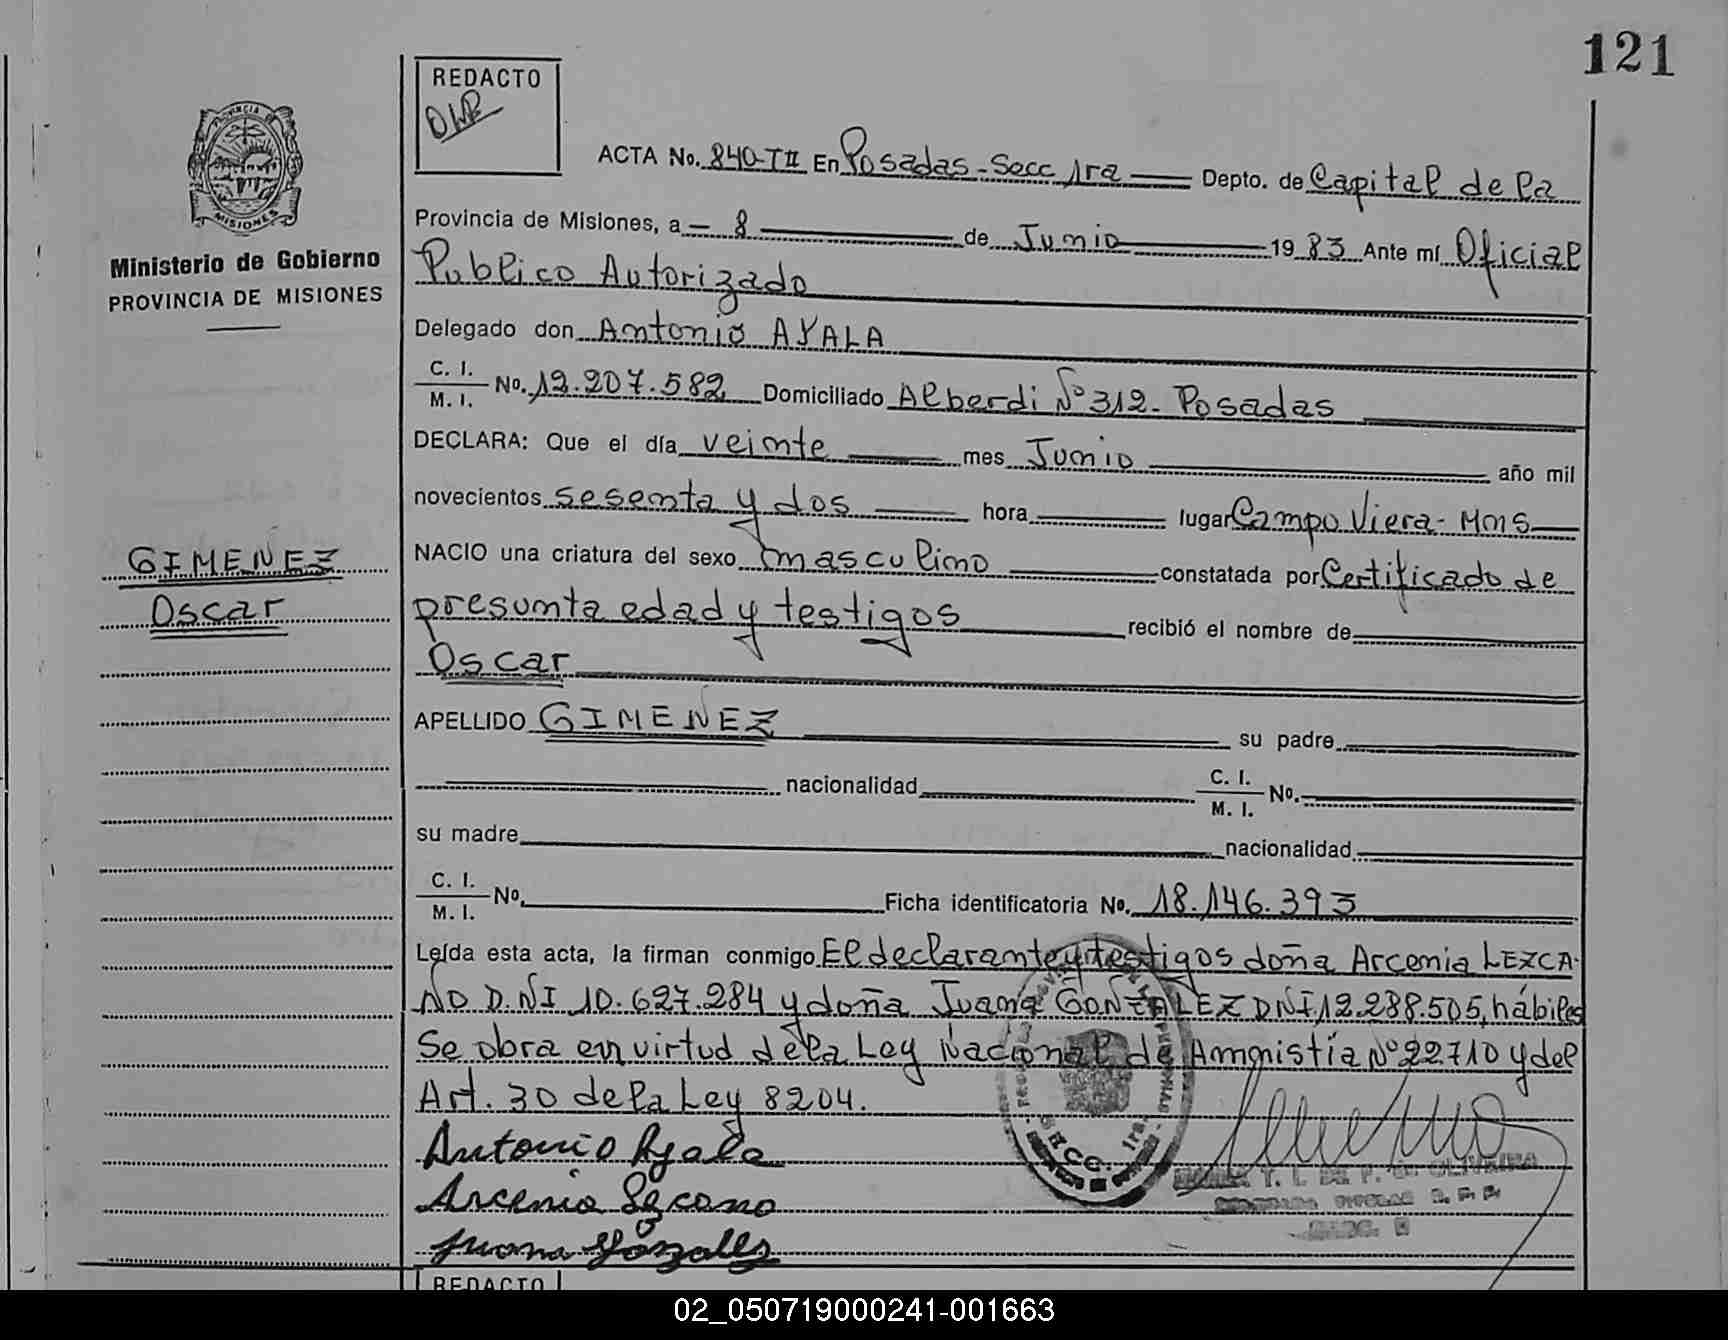 121
REDACTO
PROVINCIA DE
MISIONES
ACTA No. 840-TII En Posadas-Secc 1ra Depto. de Capital de la
Provincia de Misiones, a - 8 de Junio 1983 Ante mí Oficial
Publico Autorizado
Ministerio de Gobierno
PROVINCIA DE MISIONES
Delegado don Antonio AYALA
C. I.
M. I. No. 12.207.582 Domiciliado Alberdi Nº 312. Posadas
DECLARA: Que el día veinte mes Junio año mil
novecientos sesenta y dos hora lugar Campo Viera - Mnes
GIMENEZ
Oscar
NACIO una criatura del sexo masculino constatada por Certificado de
presunta edad y testigos recibió el nombre de
Oscar
APELLIDO GIMENEZ su padre
nacionalidad C. I.
M. I. No.
su madre nacionalidad
C. I.
M. I. No. Ficha identificatoria No. 18.146.393
Leída esta acta, la firman conmigo El declarante y testigos doña Arcenia LEZCA-
NO D.NI 10.627.284 y doña Juana GONZALEZ DNI 12.238.505, hábiles
Se obra en virtud de la Ley Nacional de Amnistía Nº 22710 y del
Art. 30 de la Ley 8204.
Antonio Ayala
Arcenia Lezcano
Juana Gonzalez
SECC. 1ra.
OLIVEIRA
REDACTO
02_050719000241-001663